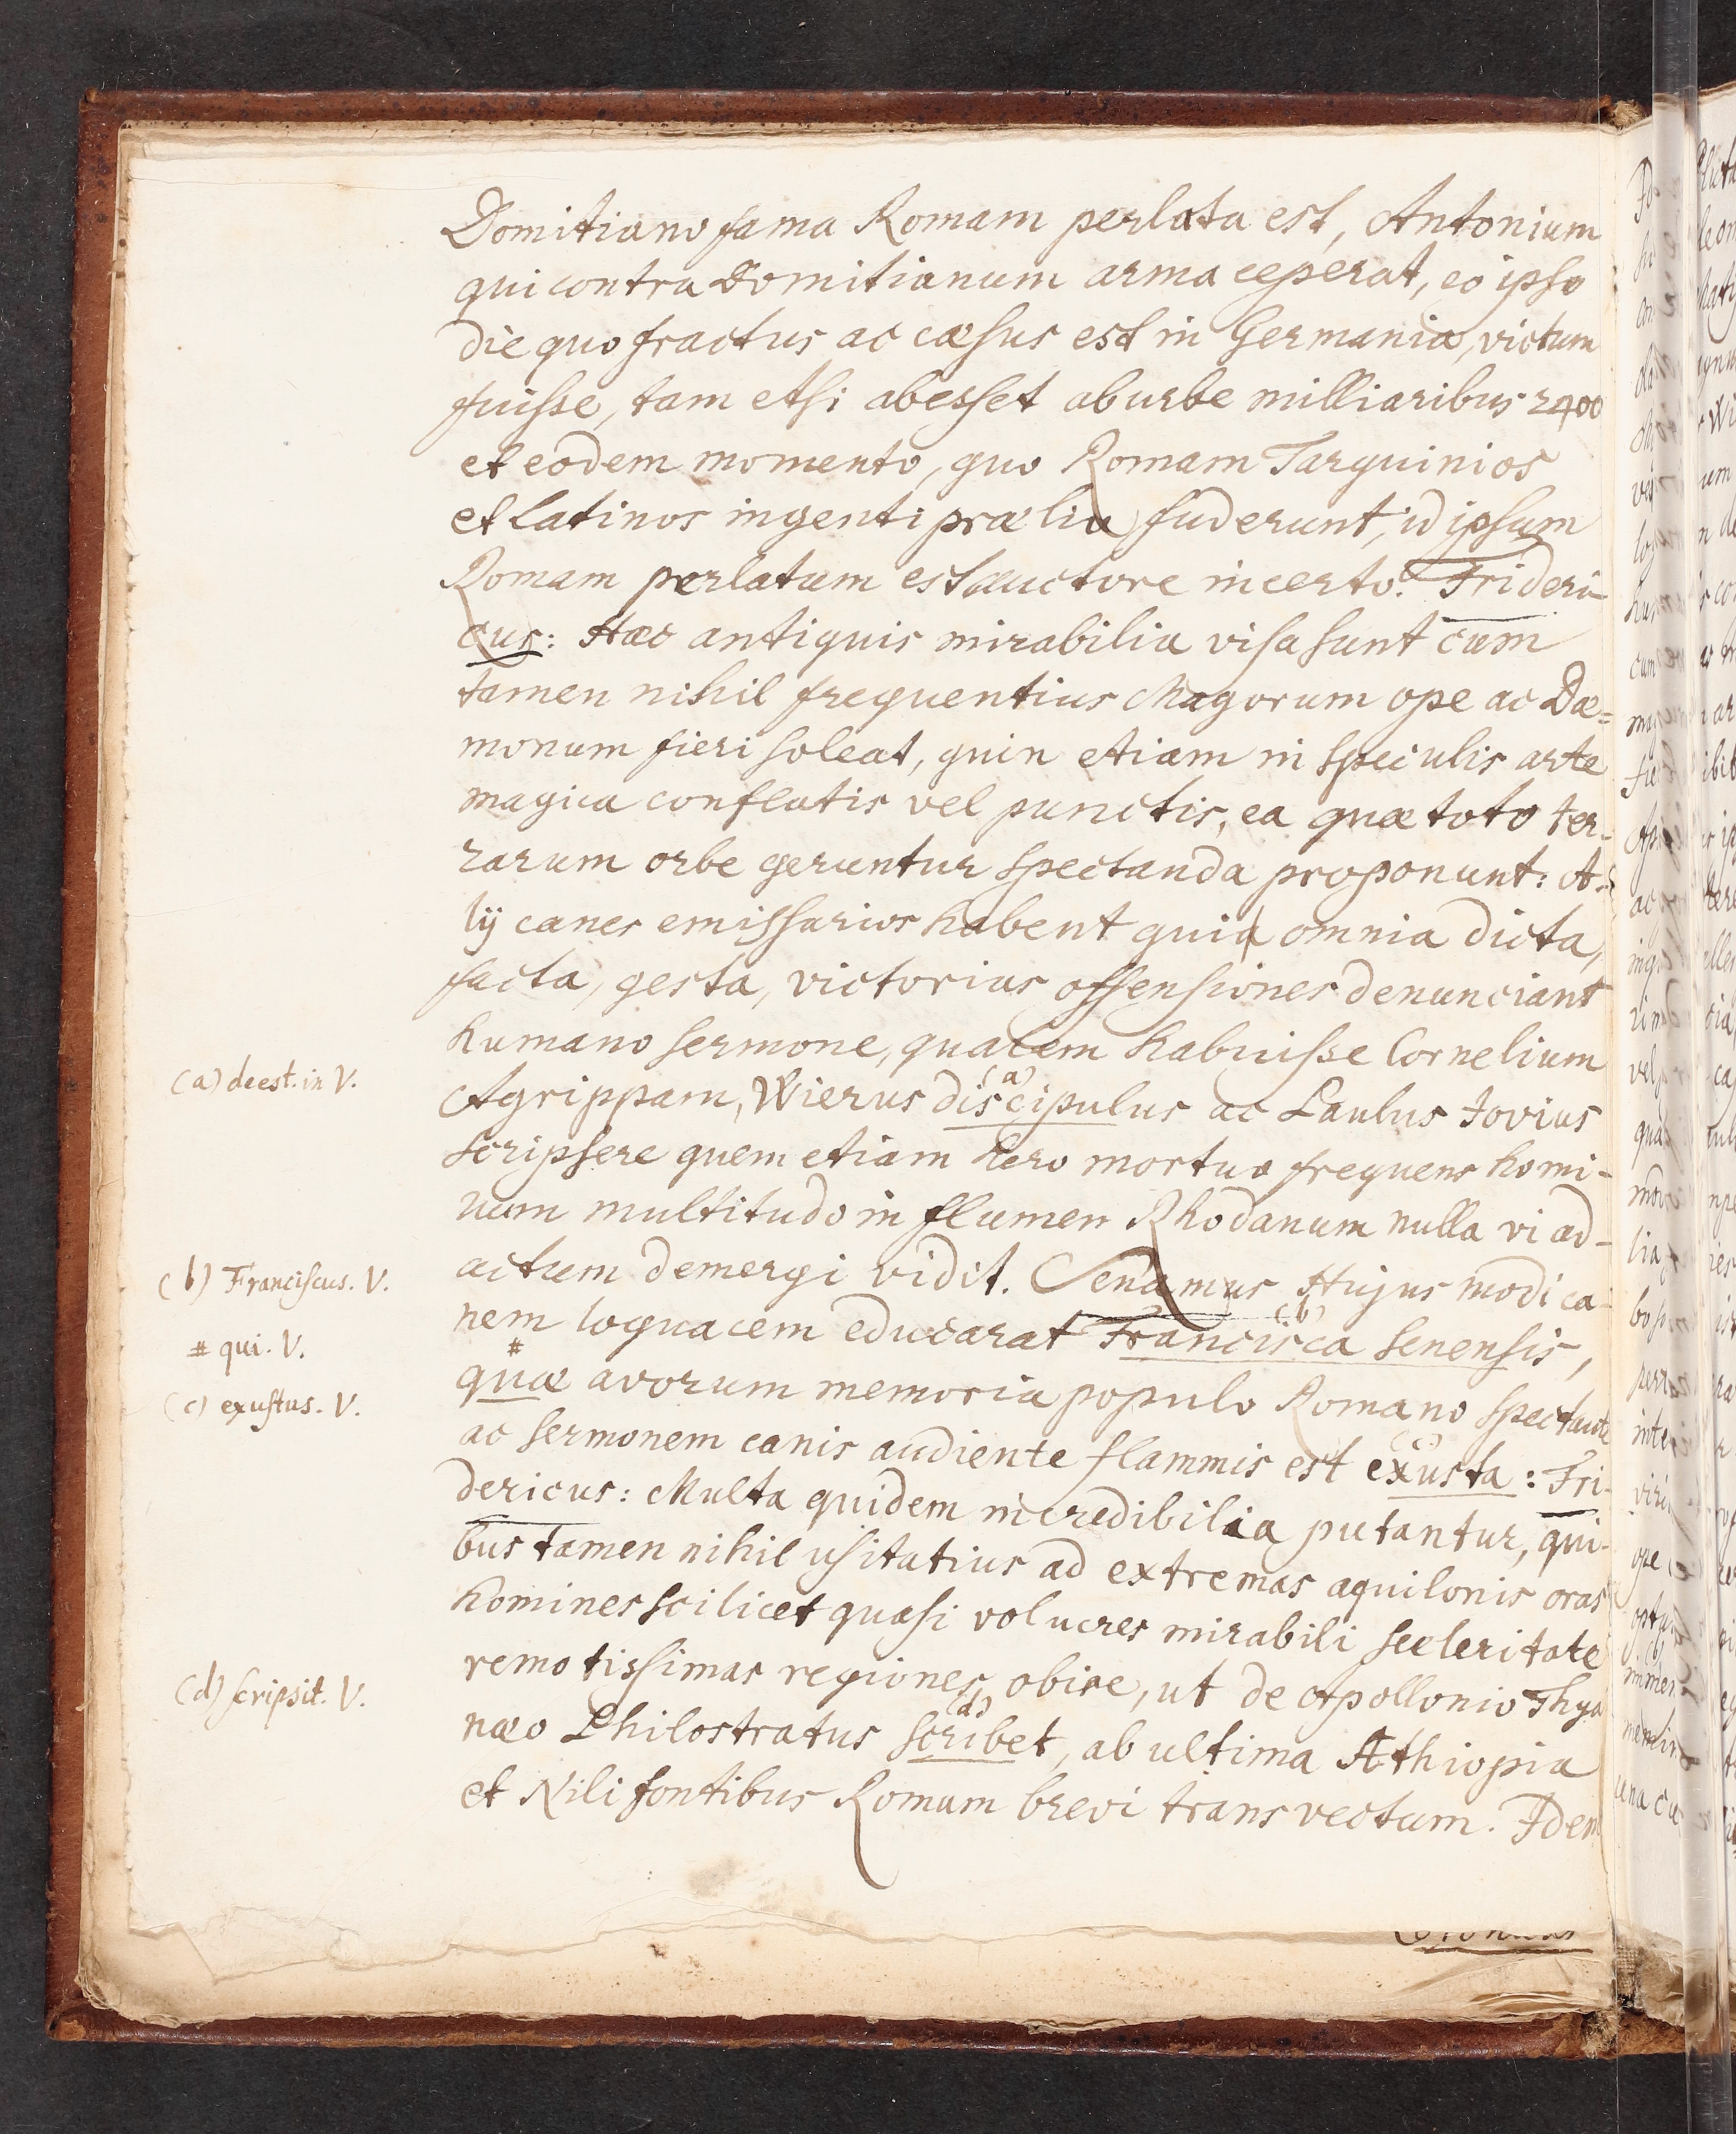 Domitiano fama Romam perlata est, Antonium
qui contra Domitianum arma ceperat, eo ipso
die quo fractus ac cæsus est in Germania, victum
fuisse, tam etsi abesset ab urbe milliaribus 2400
et eodem momento, quo Romam Tarquinios
et latinos ingenti prælia fuderunt, id ipsum
Romam perlatum est auctore incerto. Frideri-
cus: Hæc antiquis mirabilia visa sunt cum
tamen nihil frequentius Magorum ope ac Dæ=
monum fieri soleat, quin etiam in speculis arte
magica conflatis vel punctis, ea quæ toto ter-
rarum orbe geruntur spectanda proponunt: A-
lÿ canes emissarios habent quia omnia dicta,
facta, gesta, victorias offensiones denunciant
humano sermone, qualem habuisse Cornelium
(a) deest. in V.
Agrippam, Wierus discipulus (a) ac Paulus Jovius
scripsere quem etiam hero mortuo frequens homi-
num multitudo in flumen Rhodanum nulla vi ad-
actum demergi vidit. Senamus Hujus modi ca-
(b) Franciscus. V.
nem loquacem educarat Francisca (b) senensis,
# qui. V.
quæ # avorum memoria populo Romano spectante
(c) exustus. V.
ac sermonem canis audiente flammis est exusta (c): Fri-
dericus: Multa quidem incredibilia putantur, qui-
bus tamen nihil usitatius ad extremas aquilonis oras
homines scilicet quasi volucres mirabili sceleritate
remotissimas regiones obire, ut de Apollonio Thya
(d) scripsit. V.
næo Philostratus scribet (d), ab ultima Æthiopia
et Nili fontibus Romam brevi transvectum. Idem